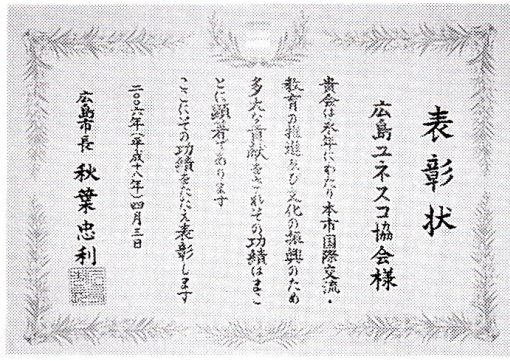 表彰状
広島ユネスコ協会様
貴会は永年にわたり本市国際交流・
教育の推進及び文化の振興のため
多大な貢献をされその功績はまこ
とに顕著であります
ここにその功績をたたえ表彰します
二〇〇六年(平成十八年)四月三日
広島市長 秋葉忠利